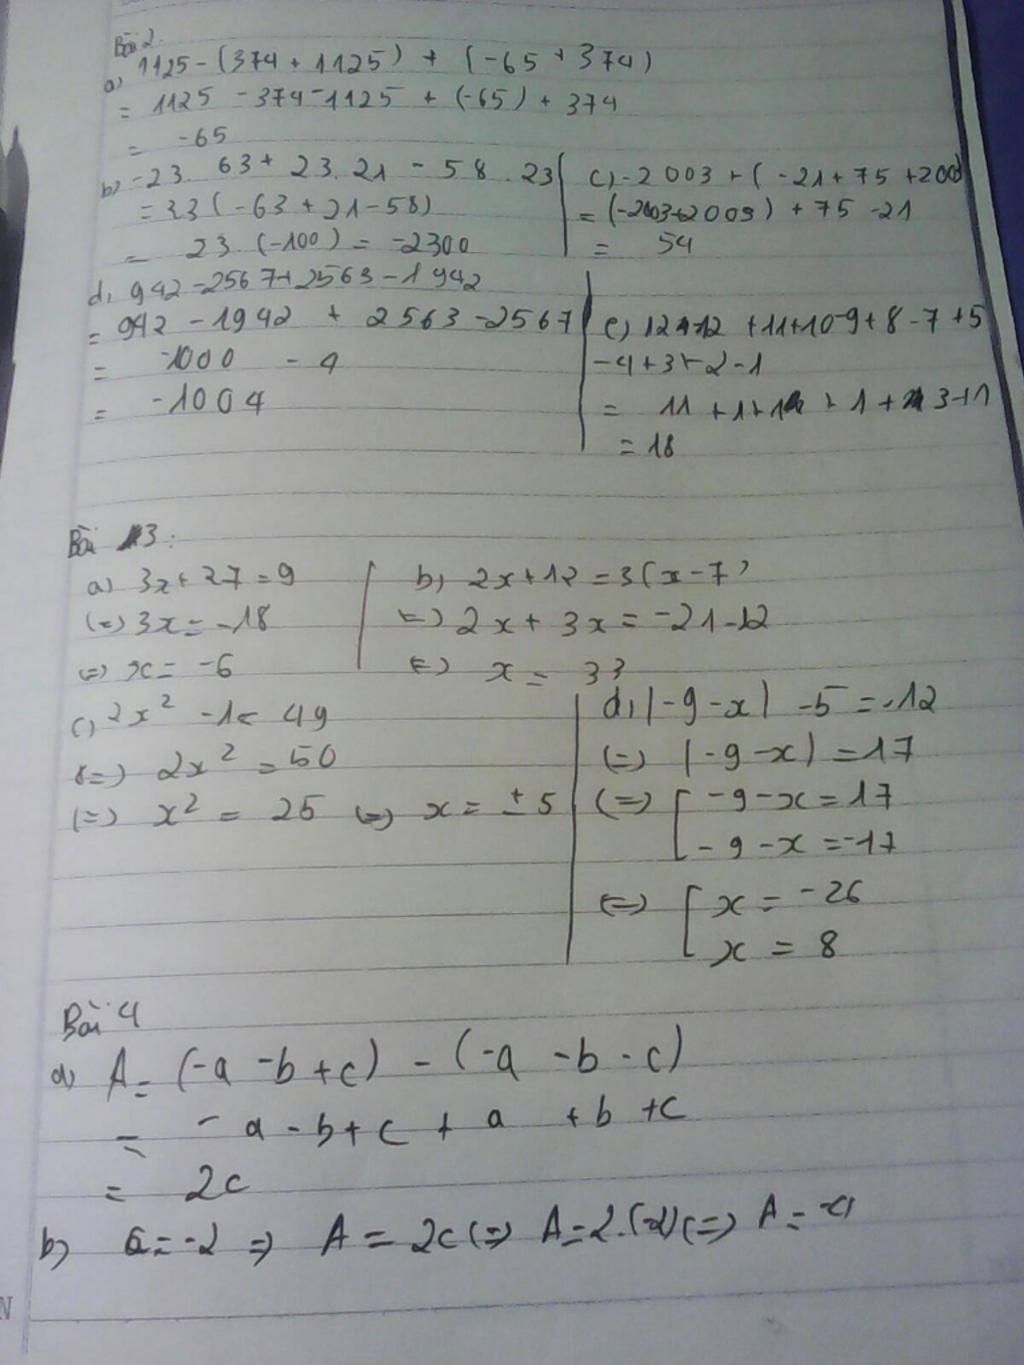 Bài 2.
a) 1125 - (374 + 1125) + (-65 + 374)
= 1125 - 374 - 1125 + (-65) + 374
= -65
b) -23. 63 + 23. 21 - 58 . 23
= 23 (-63 + 21 - 58)
= 23 (-100) = -2300
c) -2003 + (-21 + 75 + 2003)
= (-2003 + 2003) + 75 - 21
= 54
d) 942 - 2567 + 2563 - 1942
= 942 - 1942 + 2563 - 2567
= -1000 - 4
= -1004
e) 12 + 11 + 10 - 9 + 8 - 7 + 5
- 4 + 3 + 2 - 1
= 11 + 1 + 1 + 1 + 3 + 1
= 18
Bài 3:
a) 3x + 27 = 9
(=) 3x = -18
(=) x = -6
b) 2x + 12 = 3(x - 7)
(=) 2x + 3x = -21 - 12
(=) x = 33
c) 2x² - 1 = 49
(=) 2x² = 50
(=) x² = 25 (=) x = ± 5
d) |-9 - x| - 5 = 12
(=) |-9 - x| = 17
(=) [ -9 - x = 17
-9 - x = -17
(=) [ x = -26
x = 8
Bài 4
a) A = (-a - b + c) - (-a - b - c)
= -a - b + c + a + b + c
= 2c
b) c = -2 => A = 2c (=) A = 2.(-2) (=) A = -4
N